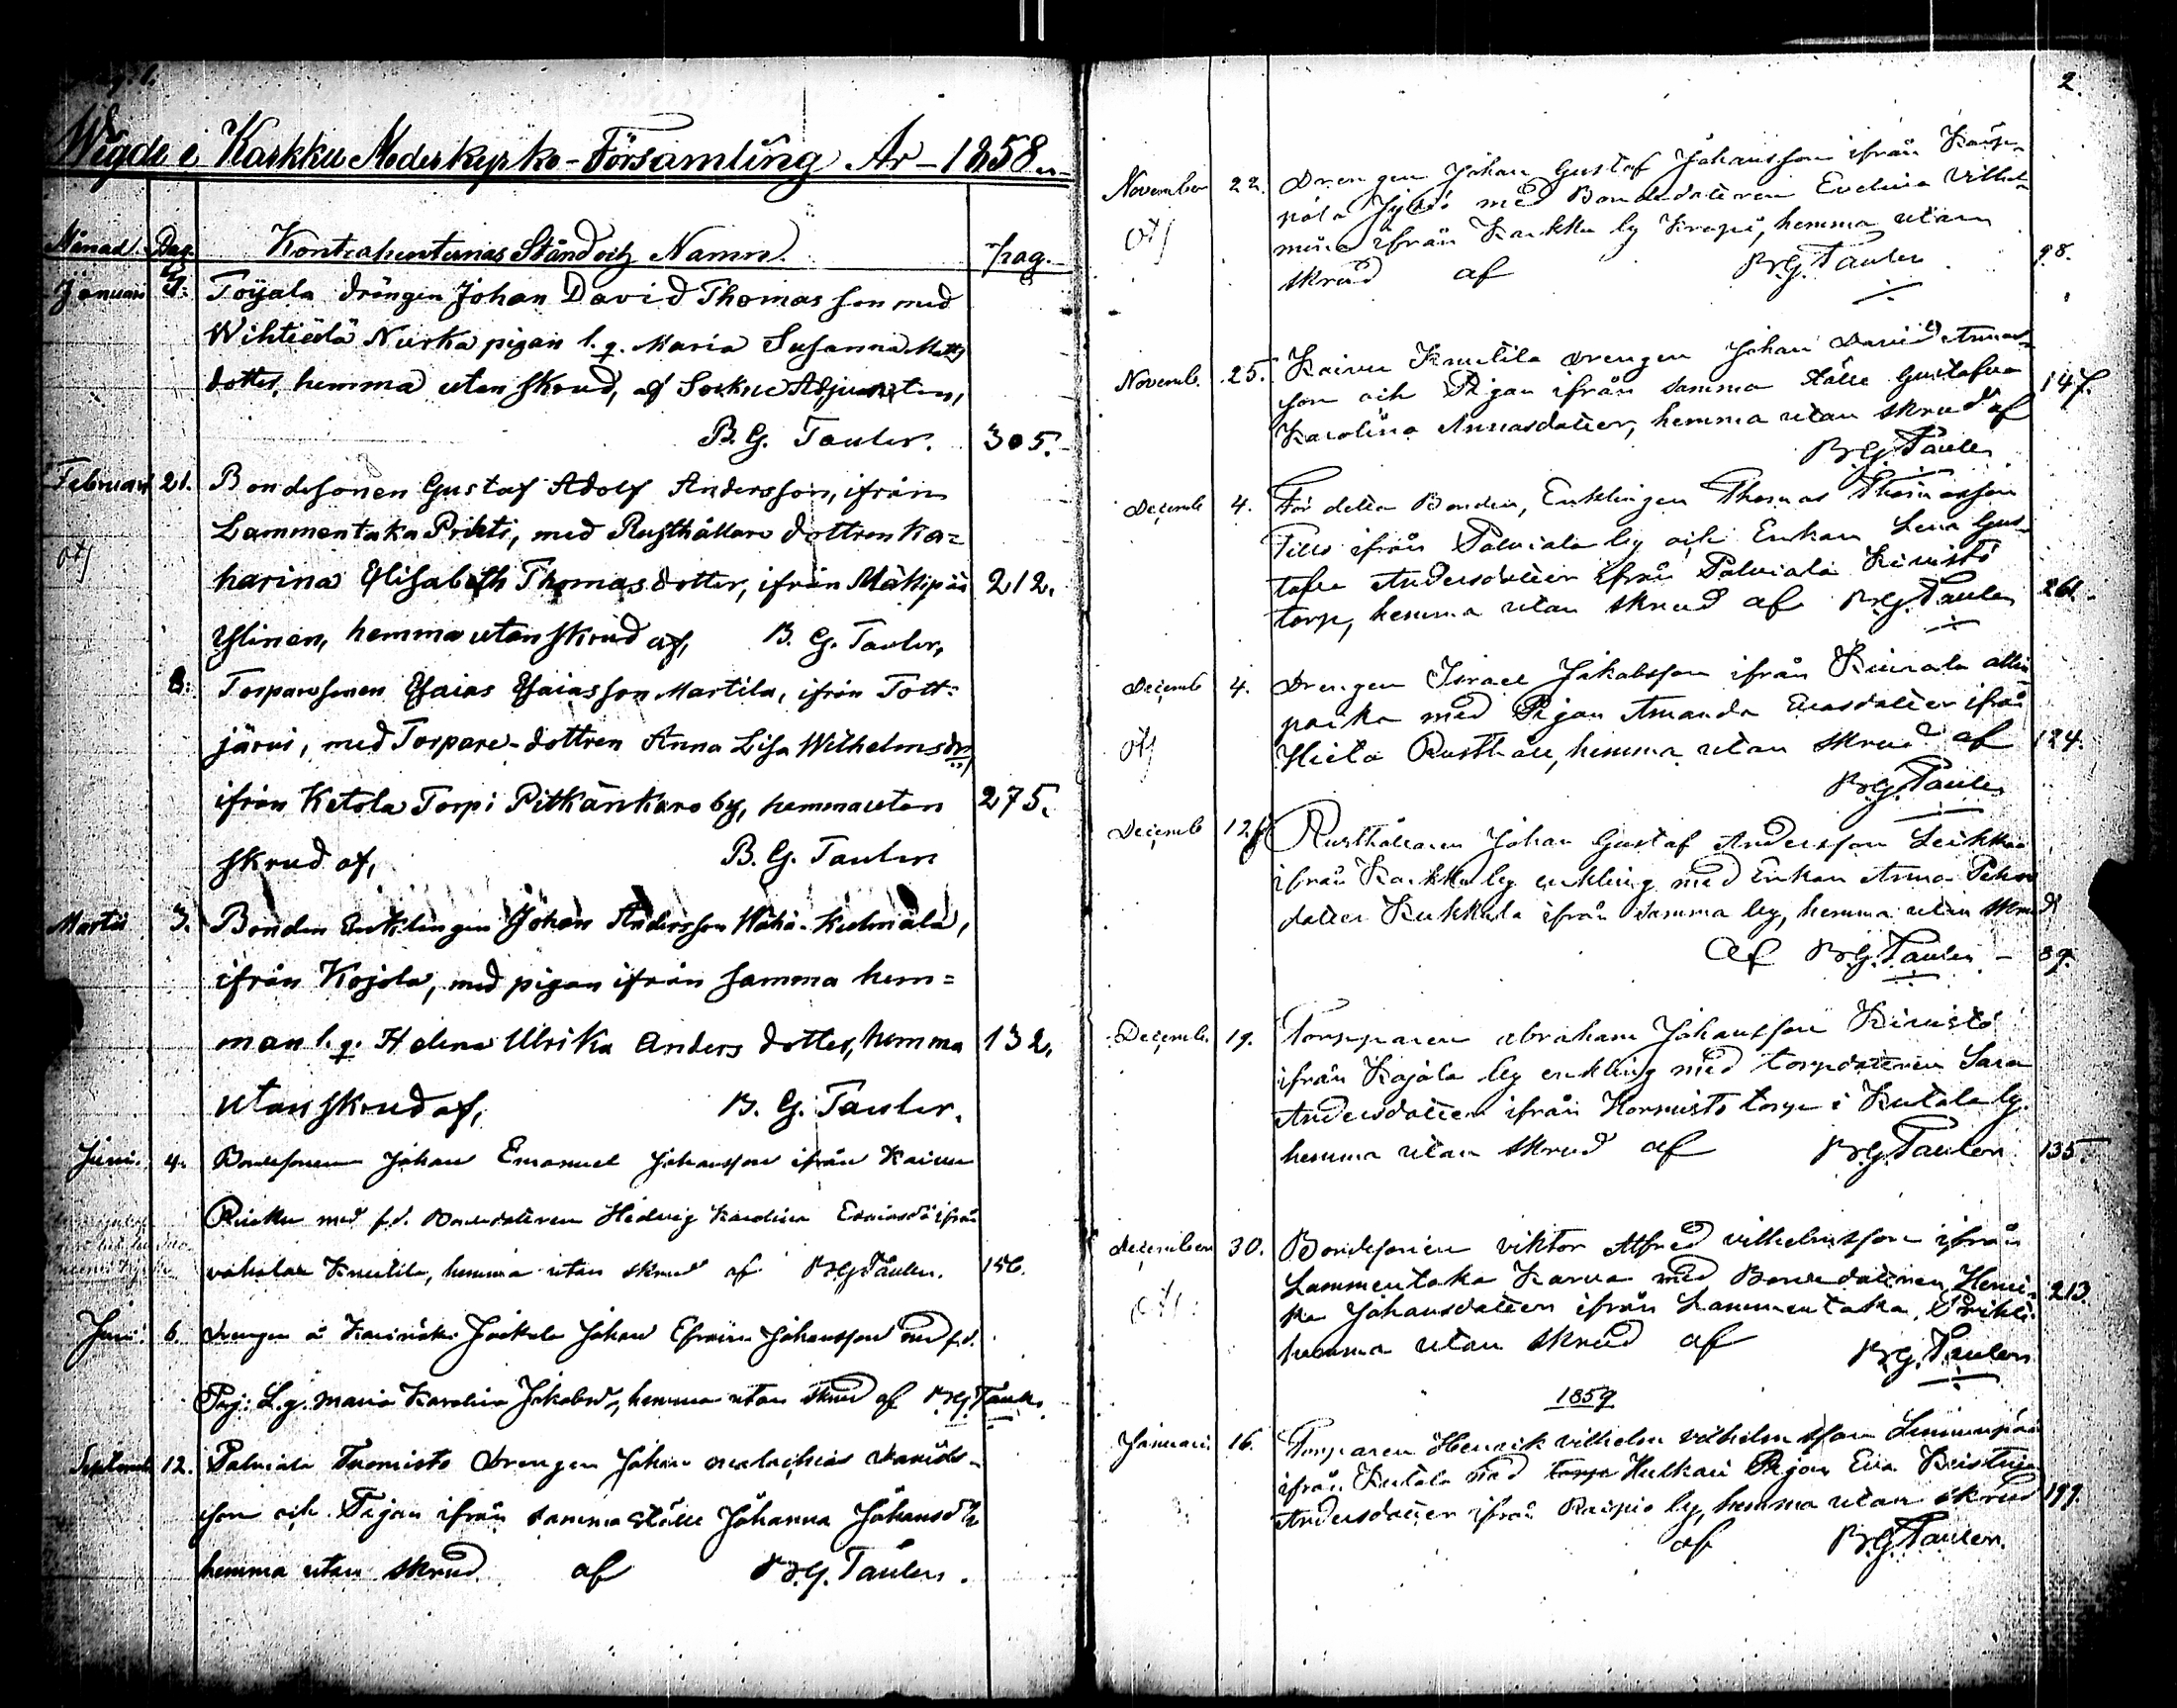 Wigde i Karkku Moderkyrko-Församling År 1858
Månad. Dag. Kontrahenternas Stånd och Namn. pag.
Januari Töyälä drängen Johan David Thomasson med
Wihtiälä Nurka pigan l. q. Maria Susanna Matts
dotter, hemma utan skrud, af Sockne Adjunkten,
B. G. Tauler. 305.
Februari 21. Bondesonen Gustaf Adolf Andersson, ifrån
Lammentaka Prihti, med Rusthållare dottren Ka=
harina Elisabeth Thomasdotter, ifrån Mäkipää 212.
Ylinen, hemma utan skrud af, B. G. Tauler,
8. Torparesonen Esaias Esaiasson Martila, ifrån Tott=
järvi, med Torpare-dottren Anna Lisa Wilhelmsdr,
ifrån Ketola Torp i Pitkänkaro by, hemma utan 275.
skrud af, B. G. Tauler
Martii 3. Bonden Enklingen Johan Andersson Wähä-Kulmala,
ifrån Kojola, med pigan ifrån samma hem=
man l. q. Helena Ulrika Anders dotter, hemma 132.
utan skrud af, B. G. Tauler.
Juni. 4. Bondesonen Johan Emanuel Johansson ifrån Kairu
med f.d. Bondedottren Hedvig Karolina ifrån
Knutila, hemma utan skrud af B.G. Tauler. 156.
Juni. 6. Drengen Johan Efraim Johansson med f.d.
Pig: L.q. Maria Karolina Jakobsd, hemma utan skrud af B.G. Tauler.
Septemb 12. Palviala Tuomisto Drengen Johan Malachias Davids-
son och Pigan ifrån samma ställe Johanna Johansd
hemma utan skrud af B.G. Tauler.
2.
November 22. Drengen Johan Gustaf Johansson ifrån
med Bondedottren Evelina Vilhel
mina ifrån Karkku by Krapi, hemma utan
skrud af B.G. Tauler 98.
Novemb. 25. Kairu Knutila Drengen Johan David
son och Pigan ifrån samma ställe Gustafva 147.
Karolina Annasdotter, hemma utan skrud af
B.G. Tauler
Decemb 4. För detta Bonden, Enklingen Thomas Thomasson
ifrån Palviala by och Enkan Lena Gus-
tafva Andersdotter ifrån Palviala Kivistö
torp, hemma utan skrud af B.G. Tauler 261.
Decemb 4. Drengen Israel Jakobsson ifrån
med Pigan Amanda ifrån
Hieta Rusthåll, hemma utan skrud af 124.
B.G. Tauler
Decemb 12. Rusthållaren Johan Gustaf Andersson
ifrån Karkku by enkling med Enkan Anna
dotter ifrån samma by, hemma utan skrud
af B.G. Tauler - 89.
Decemb. 19. Torpparen Abraham Johansson Kivistö
ifrån Kojola by enkling med torpdottren Sara
Andersdotter ifrån torp i Kutala by.
hemma utan skrud af B.G. Tauler 135.
December 30. Bondesonen Viktor Alfred Vilhelmsson ifrån
Lammentaka Karva med Bondedottren Henri- 213.
ka Johansdotter ifrån Lammentaka Prihti.
hemma utan skrud af B.G. Tauler
1859
Januari 16. Torparen Henrik Vilhelm Vilhelmsson
ifrån Kutala med Pigan Eva Kristina
Andersdotter ifrån Raipio by, hemma utan skrud 199.
af B.G. Tauler.